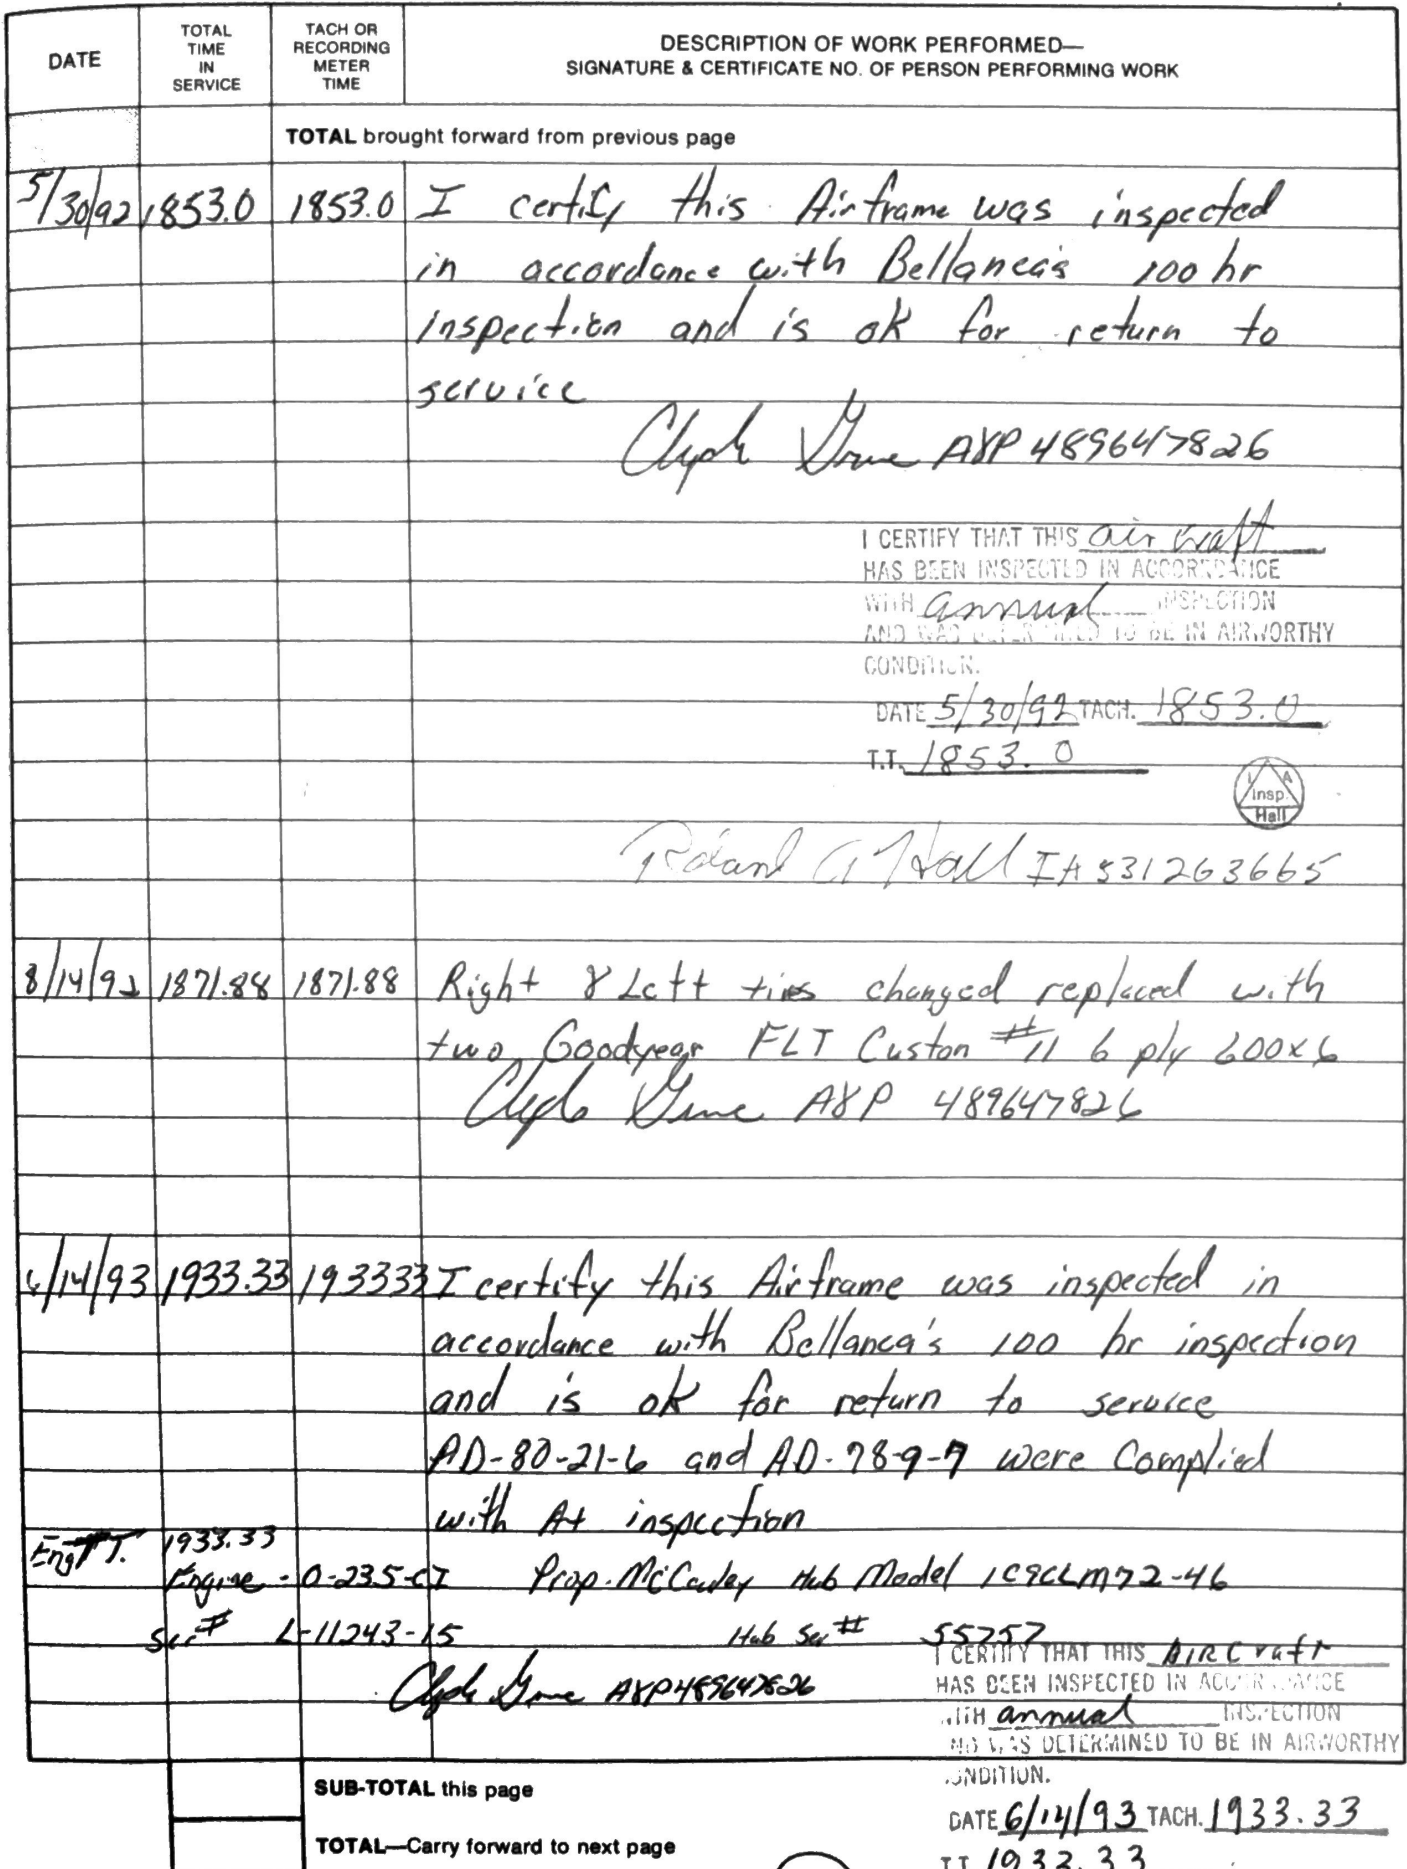 DATE
TOTAL
TIME
IN
SERVICE
TACH OR
RECORDING
METER
TIME
DESCRIPTION OF WORK PERFORMED—
SIGNATURE & CERTIFICATE NO. OF PERSON PERFORMING WORK
TOTAL brought forward from previous page
5/30/92 1853.0 1853.0 I certify this Airframe was inspected
in accordance with Bellanca's 100 hr
inspection and is ok for return to
service
Clyde A&P 489647826
I CERTIFY THAT THIS aircraft
HAS BEEN INSPECTED IN ACCORDANCE
WITH annual INSPECTION
AND WAS DETERMINED TO BE IN AIRWORTHY
CONDITION.
DATE 5/30/92 TACH. 1853.0
T.T. 1853.0
I A
Insp.
Hall
Roland A Hall IA 531263665
8/14/92 1871.88 1871.88 Right & Left tires changed replaced with
two Goodyear FLT Custon #11 6 ply 600x6
Clyde A&P 489647826
6/14/93 1933.33 193333 I certify this Airframe was inspected in
accordance with Bellanca's 100 hr inspection
and is ok for return to service
AD-80-21-6 and AD-78-9-7 were Complied
with At inspection
Eng T.T. 1933.33
Engine - O-235-CI Prop. McCauley Hub Model 1C9CLM72-46
Ser# L-11243-15 Hub Ser# 55757
Clyde A&P 489647826
I CERTIFY THAT THIS AIRCraft
HAS BEEN INSPECTED IN ACCORDANCE
WITH annual INSPECTION
AND WAS DETERMINED TO BE IN AIRWORTHY
CONDITION.
DATE 6/14/93 TACH. 1933.33
T.T. 1933.33
SUB-TOTAL this page
TOTAL—Carry forward to next page